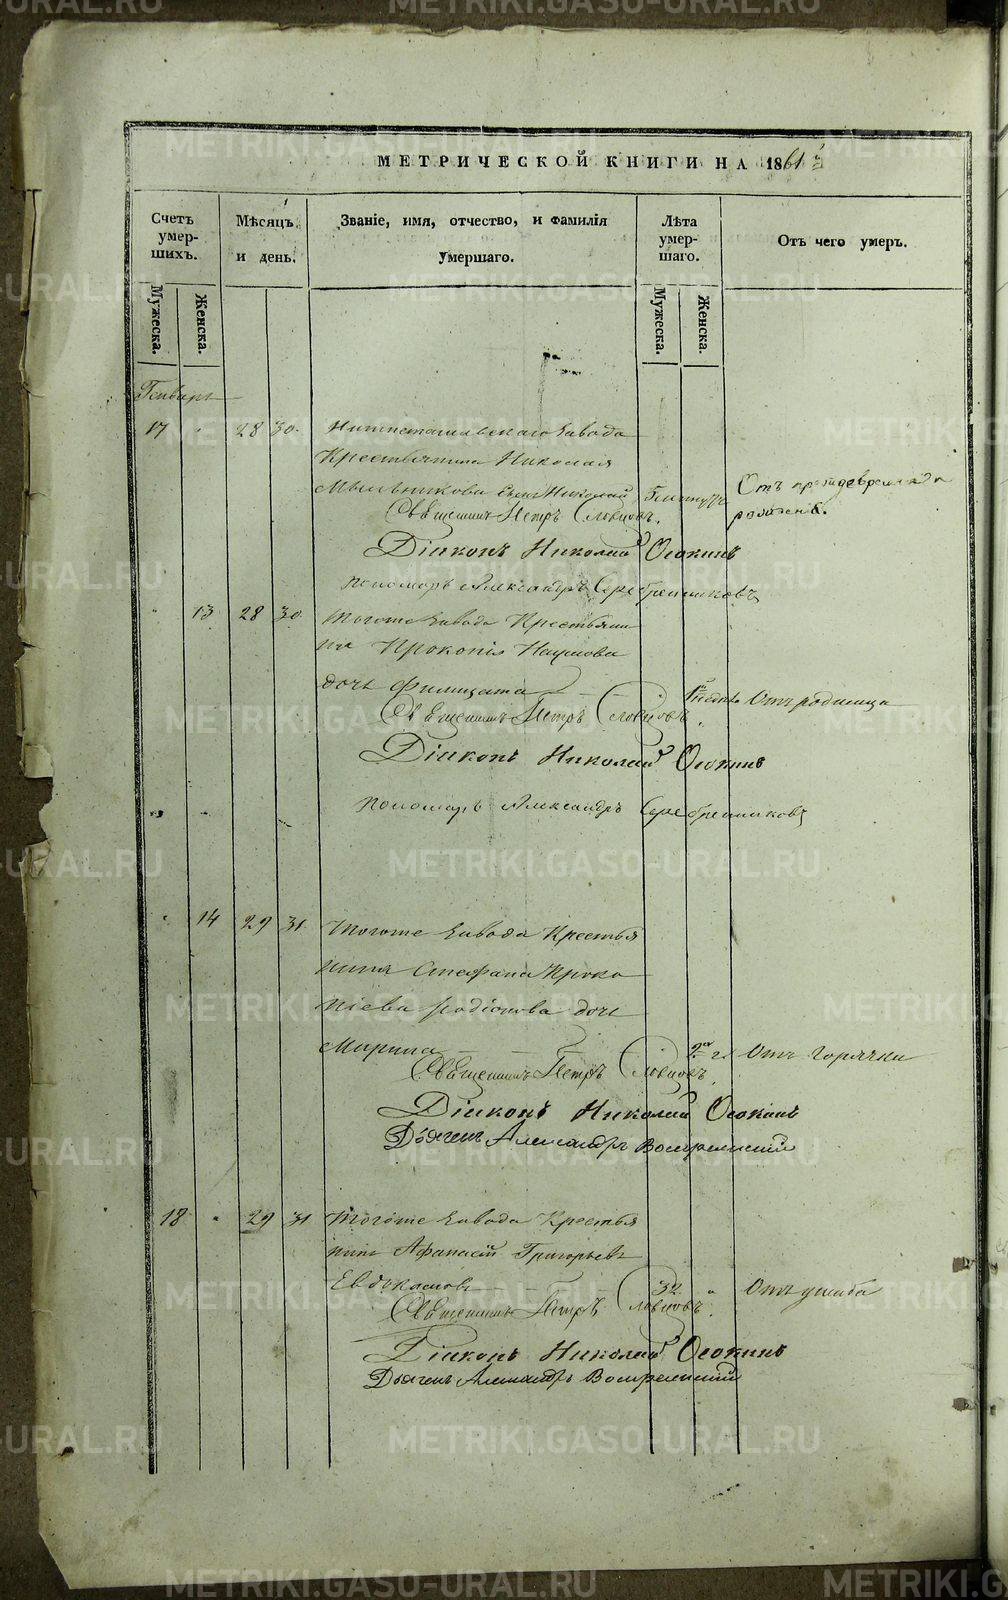 МЕТРИЧЕСКОЙ КНИГИ НА 1861й
Счетъ умер-шихъ.
Мѣсяцъ и день.
Званіе, имя, отчество, и фамилія умершаго.
Лѣта умер-шаго.
Отъ чего умеръ.
Мужеска.
Женска.
Мужеска.
Женска.
Генварь
17 28 30. Нижнетагильскаго завода
Крестьянина Николая
Мыльникова сынъ Николай Отъ преждевремена
рожденія.
Священникъ Петръ Словцовъ.
Діаконъ Николай Осокинъ
Пономарь Александръ Серебренниковъ
13 28 30. Тогоже завода Крестьяни
на Прокопія Наумова
дочь Филицата Отъ родимца
Священникъ Петръ Словцовъ
Діаконъ Николай Осокинъ
Пономарь Александръ Серебренниковъ
14 29 31 Тогоже завода Крестья
нина Стефана Проко
піева Родіонова дочь
Марина 2 г. Отъ горячки
Священникъ Петръ Словцовъ.
Діаконъ Николай Осокинъ
Дьячекъ Александръ Воскресенскій
18 29 31 Тогоже завода Крестья
нинъ Афанасій Григорьевъ
Евдокимовъ 32 Отъ ушиба
Священникъ Петръ Словцовъ.
Діаконъ Николай Осокинъ
Дьячекъ Александръ Воскресенскій
METRIKI.GASO-URAL.RU